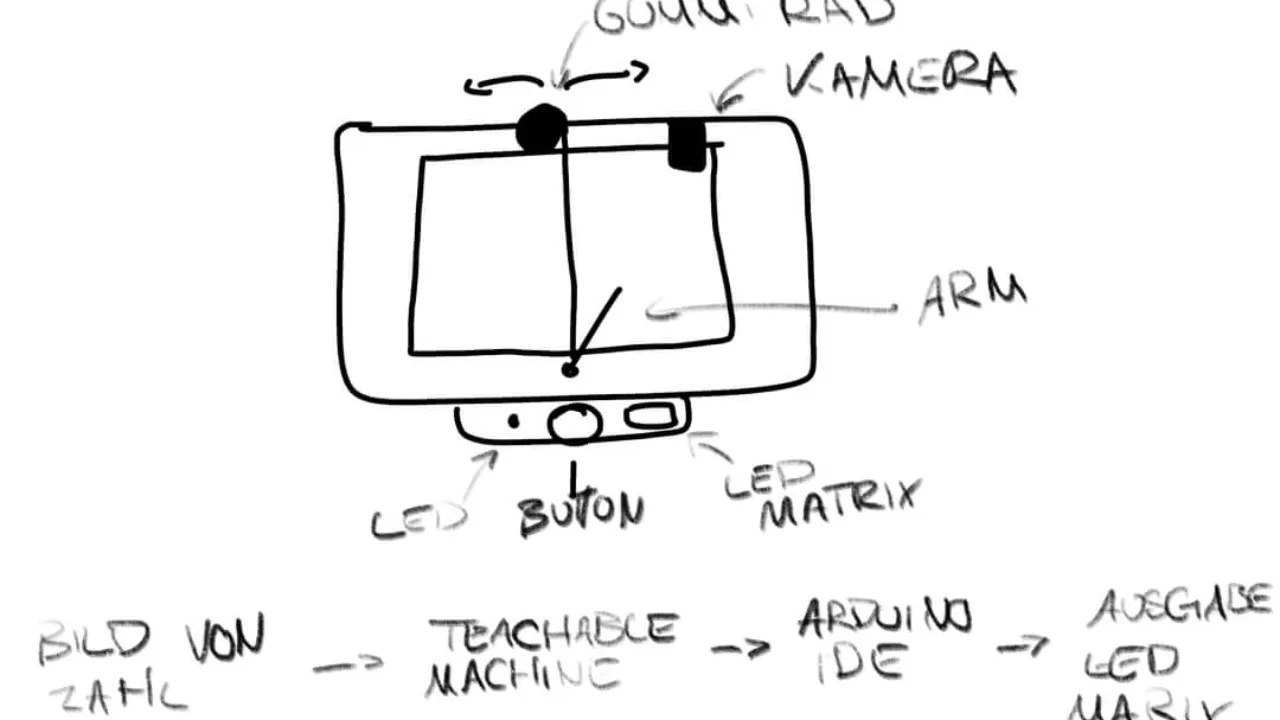 GUMMI RAD
KAMERA
ARM
LED
BUTTON
LED
MATRIX
BILD VON
ZAHL
TEACHABLE
MACHINE
ARDUINO
IDE
AUSGABE
LED
MARIX